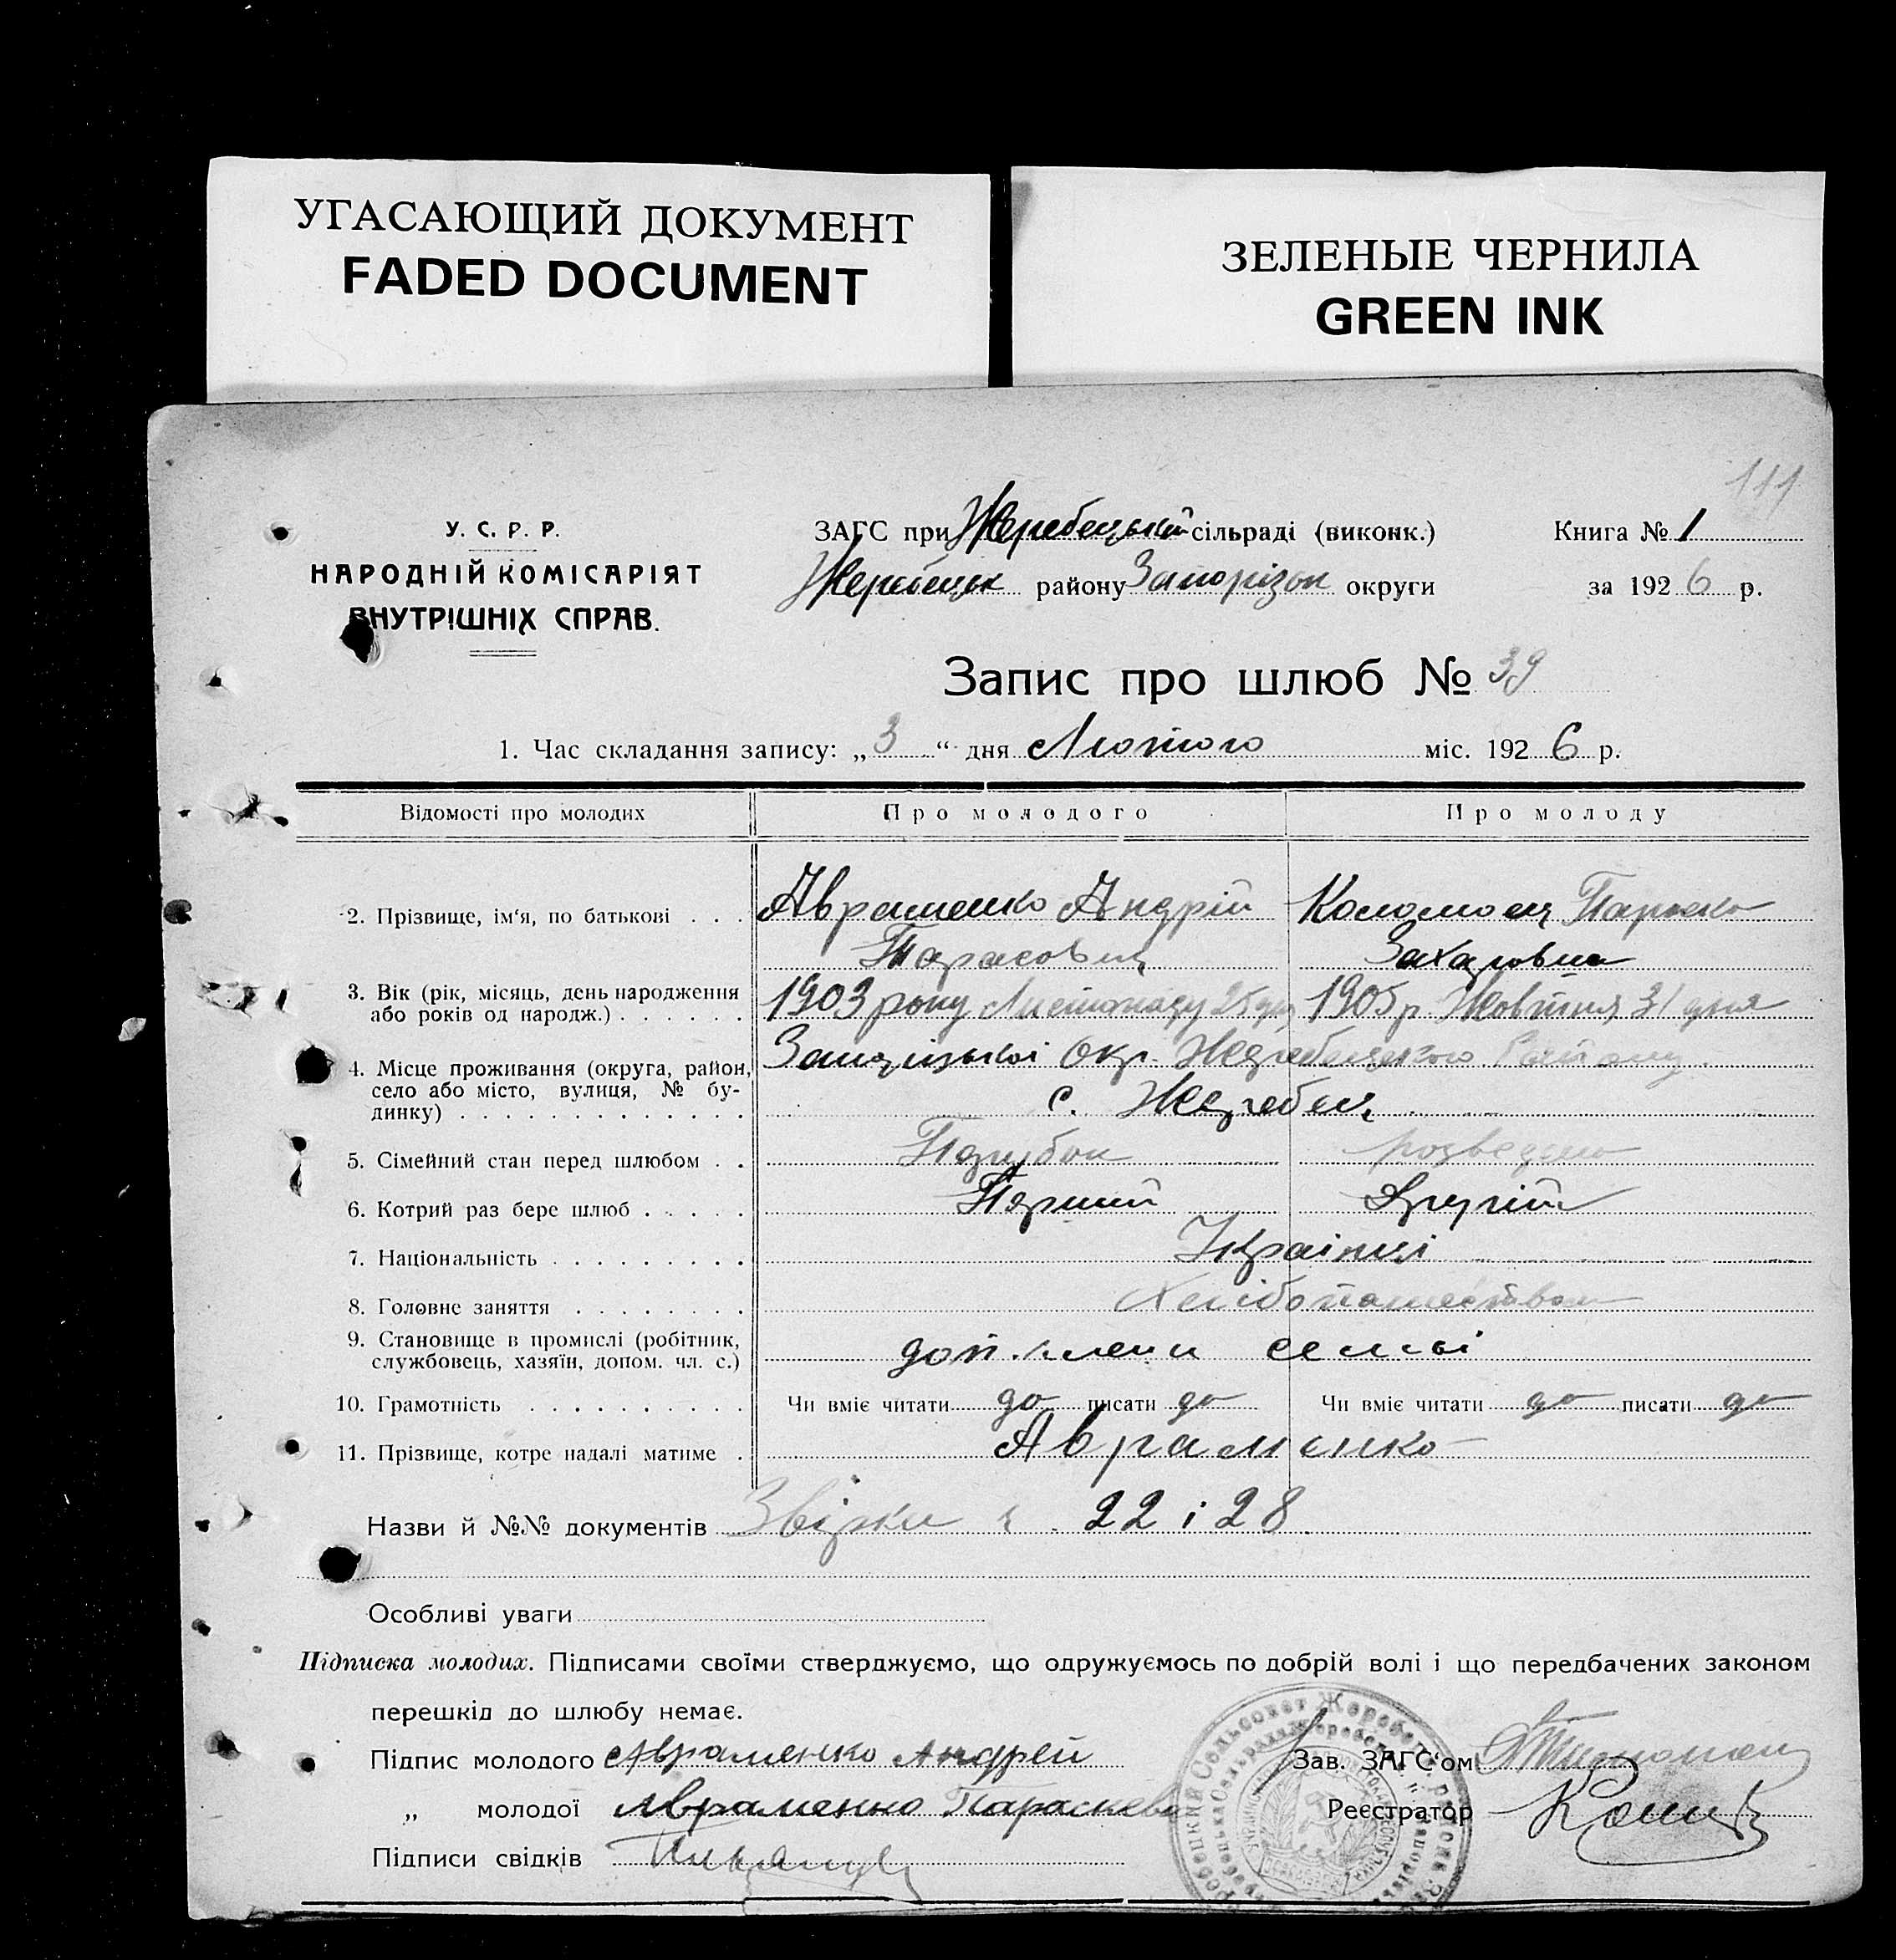 УГАСАЮЩИЙ ДОКУМЕНТ
FADED DOCUMENT
ЗЕЛЕНЫЕ ЧЕРНИЛА
GREEN INK
111
У. С. Р. Р.
НАРОДНІЙ КОМІСАРІЯТ
ВНУТРІШНІХ СПРАВ.
ЗАГС при Жеребецькій сільраді (виконк.)
Жеребецьк району Запорізьк округи
Книга № 1
за 1926 р.
Запис про шлюб № 39
1. Час складання запису: „3“ дня Лютого міс. 1926 р.
Відомості про молодих Про молодого Про молоду
2. Прізвище, ім‘я, по батькові . . . Авраменко Андрій Коломоец Параска
Тарасович Захаровна
3. Вік (рік, місяць, день народження або років од народж.) . . . . . . 1903 року Листопаду 25 дня 1905 р. Жовтня 31 дня
4. Місце проживання (округа, район, село або місто, вулиця, № будинку) . . . . . . . . . . . . . Запорізької Окр. Жеребецького Району
с. Жеребец
5. Сімейний стан перед шлюбом . . Парубок розведена
6. Котрий раз бере шлюб . . . . . Перший Другій
7. Національність . . . . . . . . . Українці
8. Головне заняття . . . . . . . . Хлібопашество
9. Становище в промислі (робітник, службовець, хазяїн, допом. чл. с.) доп. члени семьі
10. Грамотність . . . . . . . . . . Чи вміє читати да писати да Чи вміє читати да писати да
11. Прізвище, котре надалі матиме . Авраменко
Назви й №№ документів 22 і 28
Особливі уваги
Підписка молодих. Підписами своїми стверджуємо, що одружуємось по добрій волі і що передбачених законом
перешкід до шлюбу немає.
Підпис молодого Авраменко Андрей
Зав. ЗАГС‘ом
„ молодої Авраменко Параскева
Реєстратор
Підписи свідків